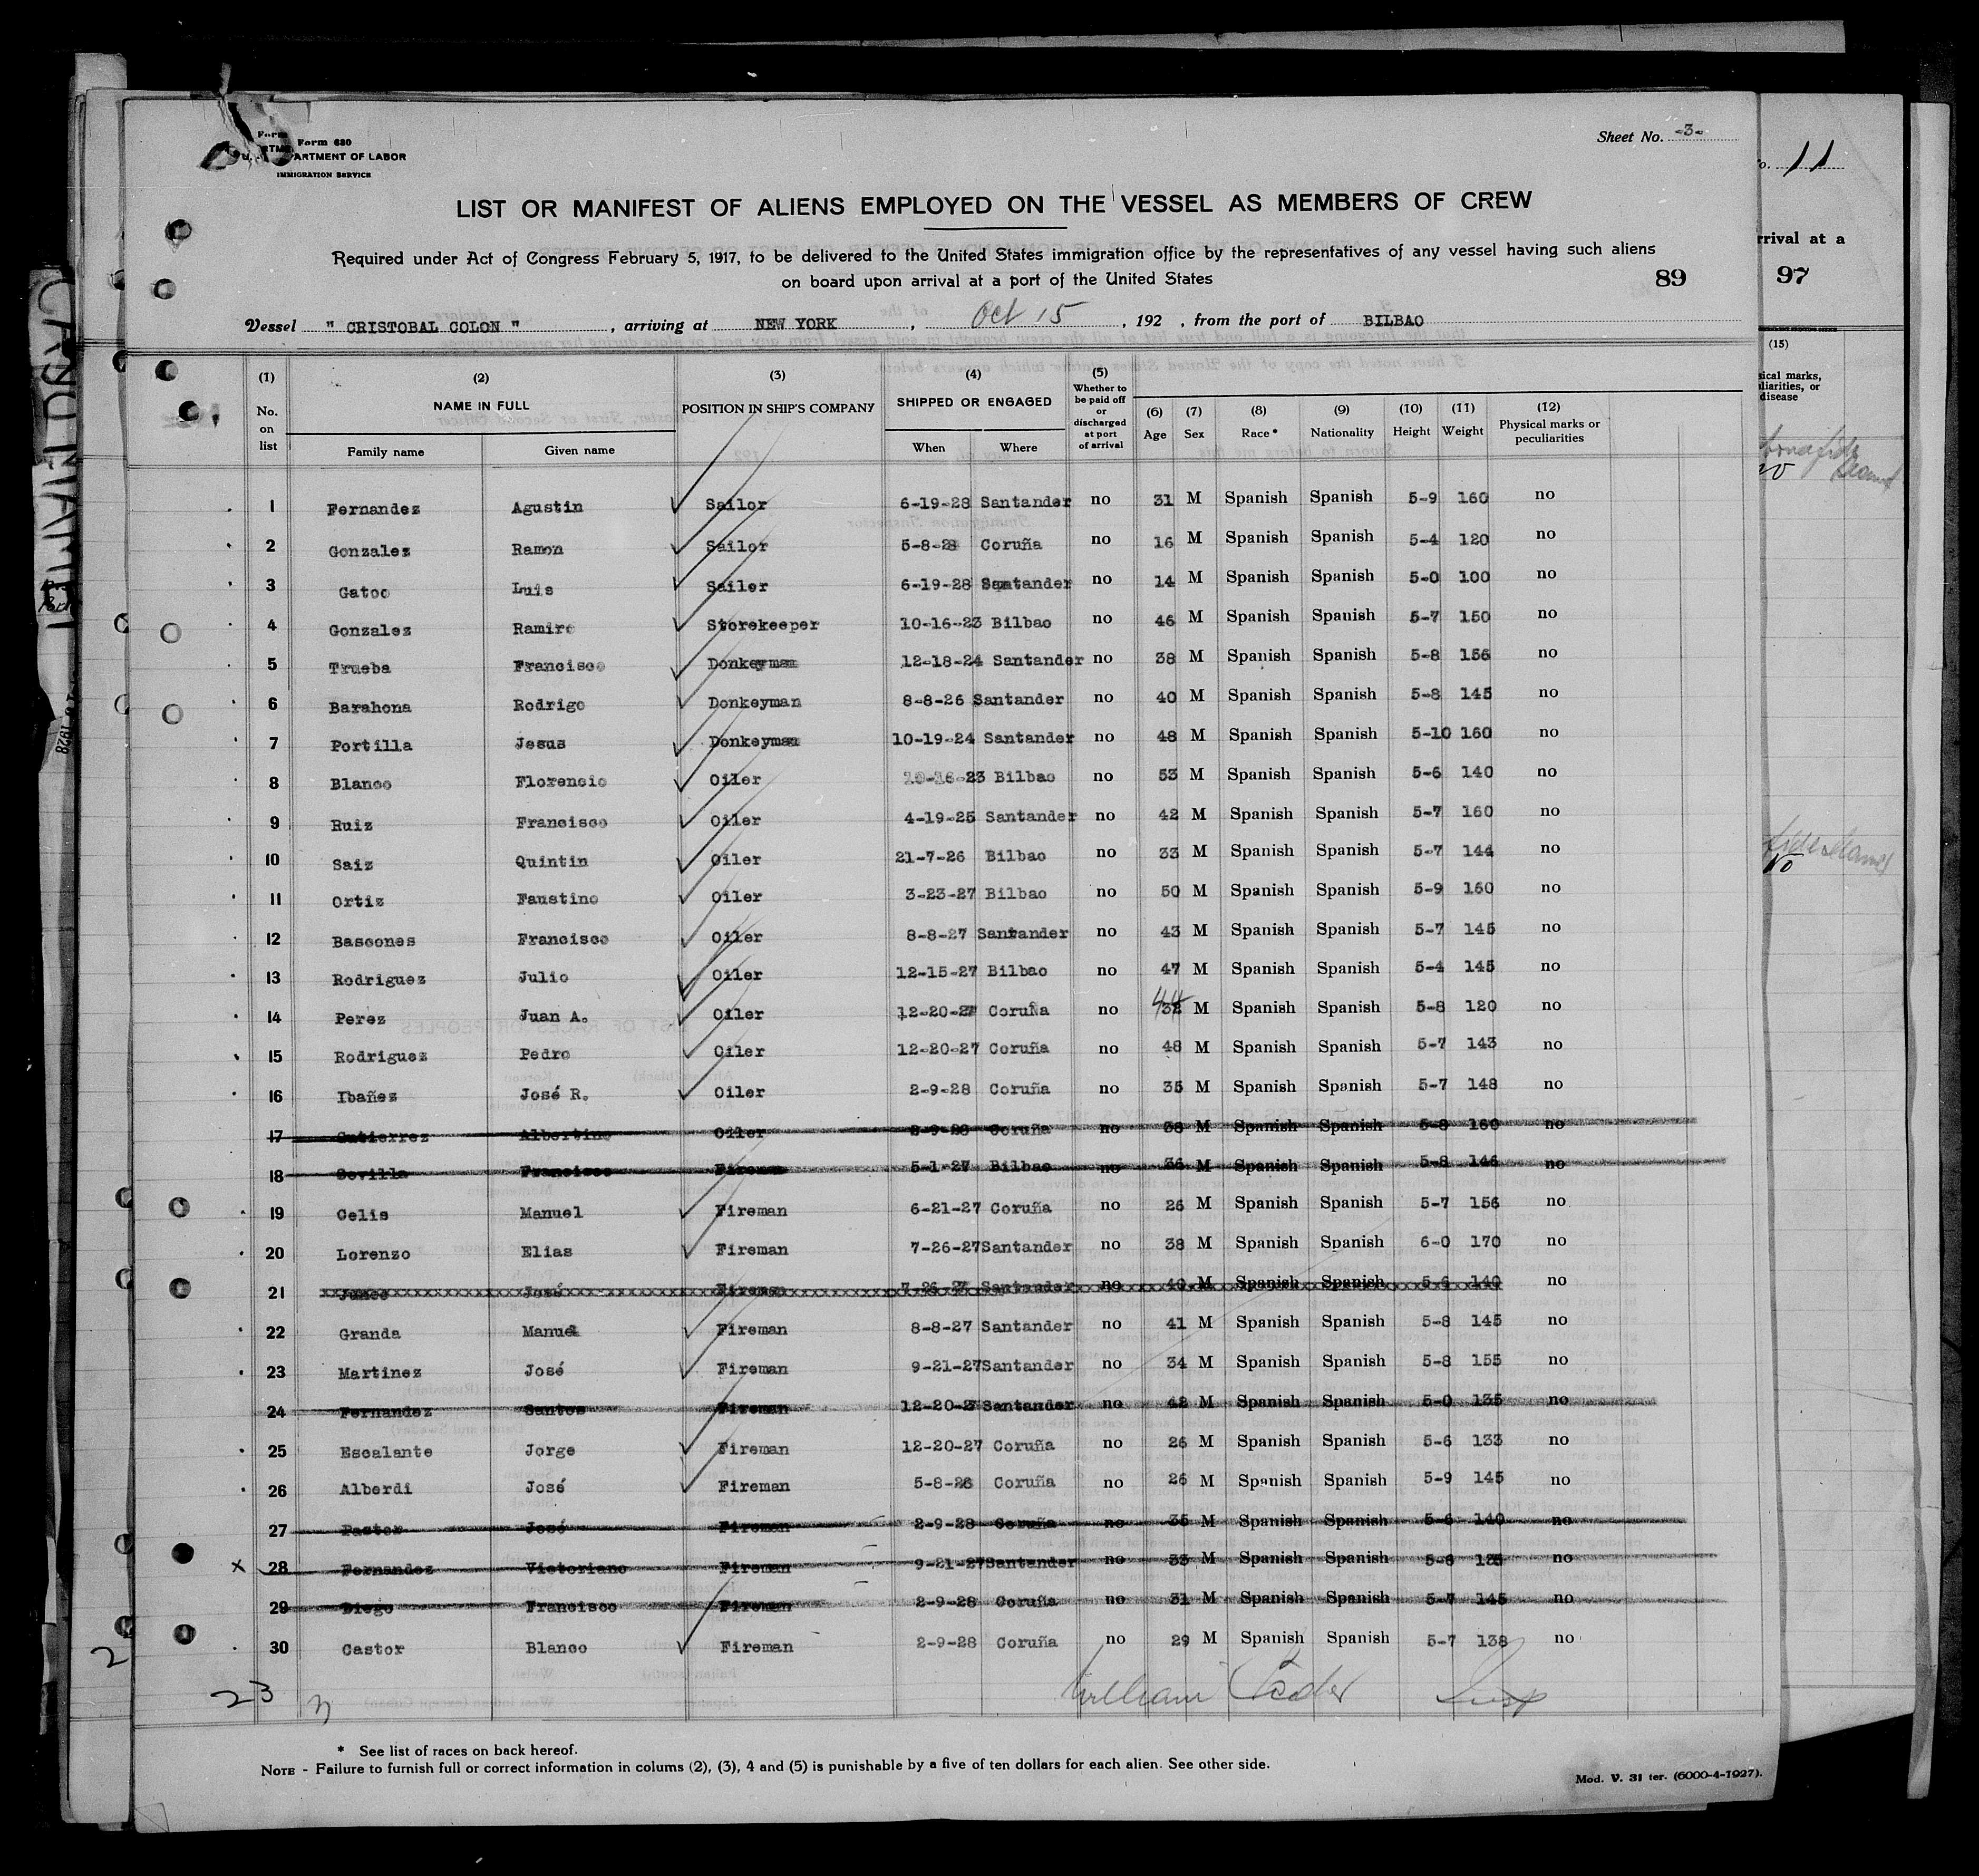 Form 680
U. S. DEPARTMENT OF LABOR
IMMIGRATION SERVICE
Sheet No. -3-
LIST OR MANIFEST OF ALIENS EMPLOYED ON THE VESSEL AS MEMBERS OF CREW
Required under Act of Congress February 5, 1917, to be delivered to the United States immigration office by the representatives of any vessel having such aliens
on board upon arrival at a port of the United States
89
Vessel " CRISTOBAL COLON " , arriving at NEW YORK , Oct 15 , 192 , from the port of BILBAO
(1) No. on list (2) NAME IN FULL Family name Given name (3) POSITION IN SHIP'S COMPANY (4) SHIPPED OR ENGAGED When Where (5) Whether to be paid off or discharged at port of arrival (6) Age (7) Sex (8) Race* (9) Nationality (10) Height (11) Weight (12) Physical marks or peculiarities
1 Fernandez Agustin Sailor 6-19-28 Santander no 31 M Spanish Spanish 5-9 160 no
2 Gonzalez Ramon Sailor 5-8-28 Coruña no 16 M Spanish Spanish 5-4 120 no
3 Gatoo Luis Sailer 6-19-28 Santander no 14 M Spanish Spanish 5-0 100 no
4 Gonzalez Ramiro Storekeeper 10-16-23 Bilbao no 46 M Spanish Spanish 5-7 150 no
5 Trueba Francisco Donkeyman 12-18-24 Santander no 38 M Spanish Spanish 5-8 156 no
6 Barahona Rodrigo Donkeyman 8-8-26 Santander no 40 M Spanish Spanish 5-8 145 no
7 Portilla Jesus Donkeyman 10-19-24 Santander no 48 M Spanish Spanish 5-10 160 no
8 Blanco Florencio Oiler 10-16-23 Bilbao no 53 M Spanish Spanish 5-6 140 no
9 Ruiz Francisco Oiler 4-19-25 Santander no 42 M Spanish Spanish 5-7 160 no
10 Saiz Quintin Oiler 21-7-26 Bilbao no 33 M Spanish Spanish 5-7 144 no
11 Ortiz Faustino Oiler 3-23-27 Bilbao no 50 M Spanish Spanish 5-9 160 no
12 Bascones Francisco Oiler 8-8-27 Santander no 43 M Spanish Spanish 5-7 145 no
13 Rodriguez Julio Oiler 12-15-27 Bilbao no 47 M Spanish Spanish 5-4 145 no
14 Perez Juan A. Oiler 12-20-27 Coruña no 44 M Spanish Spanish 5-8 120 no
15 Rodriguez Pedro Oiler 12-20-27 Coruña no 48 M Spanish Spanish 5-7 143 no
16 Ibañez José R. Oiler 2-9-28 Coruña no 35 M Spanish Spanish 5-7 148 no
17 Gutierrez Albertino Oiler 2-9-28 Coruña no 38 M Spanish Spanish 5-8 160 no
18 Sevilla Francisco Fireman 5-1-27 Bilbao no 36 M Spanish Spanish 5-8 146 no
19 Celis Manuel Fireman 6-21-27 Coruña no 26 M Spanish Spanish 5-7 156 no
20 Lorenzo Elias Fireman 7-26-27 Santander no 38 M Spanish Spanish 6-0 170 no
21 José Fireman 7-26-27 Santander no 40 M Spanish Spanish 5-6 140 no
22 Granda Manuel Fireman 8-8-27 Santander no 41 M Spanish Spanish 5-8 145 no
23 Martinez José Fireman 9-21-27 Santander no 34 M Spanish Spanish 5-8 155 no
24 Fernandez Santos Fireman 12-20-2 Santander no 42 M Spanish Spanish 5-0 135 no
25 Escalante Jorge Fireman 12-20-27 Coruña no 26 M Spanish Spanish 5-6 133 no
26 Alberdi José Fireman 5-8-28 Coruña no 26 M Spanish Spanish 5-9 145 no
27 Pastor José Fireman 2-9-28 Coruña no 35 M Spanish Spanish 5-6 140 no
x 28 Fernandez Victoriano Fireman 9-21-27 Santander no 33 M Spanish Spanish 5-8 135 no
29 Diego Francisco Fireman 2-9-28 Coruña no 31 M Spanish Spanish 5-7 145 no
30 Castor Blanco Fireman 2-9-28 Coruña no 29 M Spanish Spanish 5-7 138 no
23
William Insp
* See list of races on back hereof.
NOTE - Failure to furnish full or correct information in colums (2), (3), 4 and (5) is punishable by a five of ten dollars for each alien. See other side.
Mod. V. 31 ter. (6000-4-1927).
11
rrival at a
97
(15)
sical marks,
liarities, or
disease
no
no
1928
2